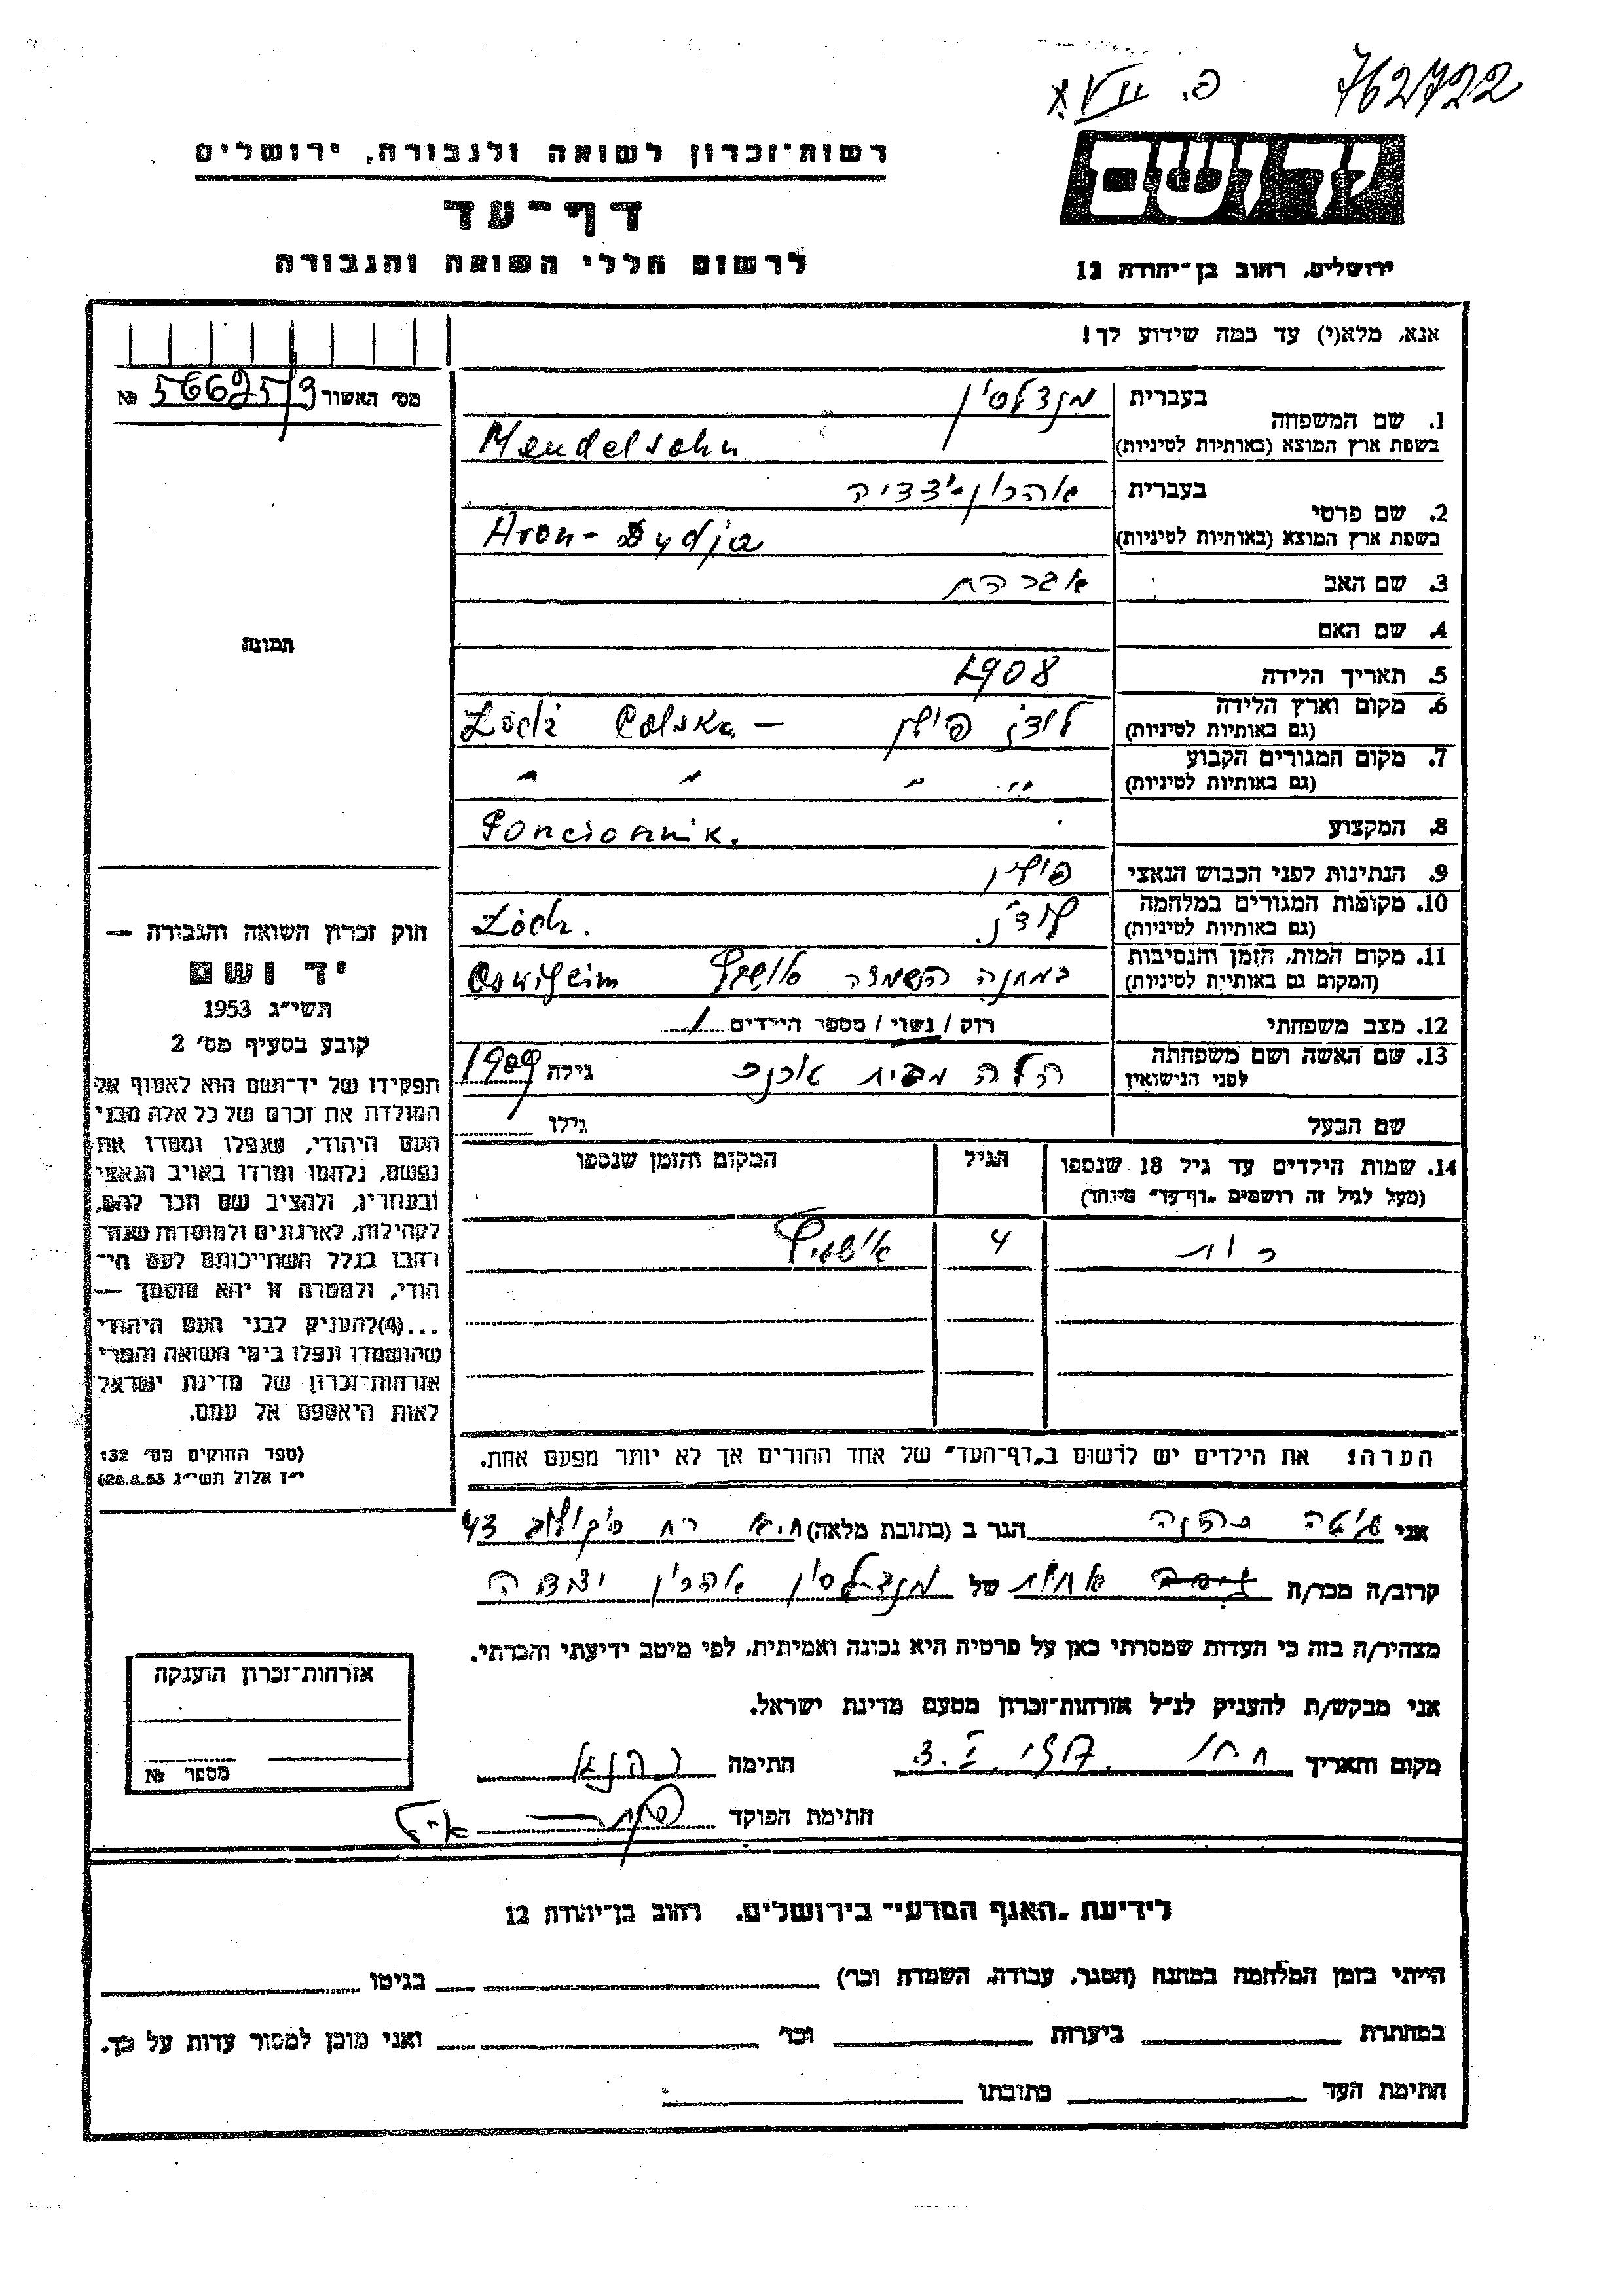 פ. XVII 762722
ידושם
רשות־זכרון לשואה ולגבורה, ירושלים
דף־עד
לרשום חללי השואה והגבורה
ירושלים, רחוב בן־יהודה 12
אנא, מלא(י) עד כמה שידוע לך!
מס׳ האשור 56625/9 №
1. שם המשפחה
בעברית מנדלסון
בשפת ארץ המוצא (באותיות לטיניות) Mendelsohn
2. שם פרטי
בעברית
בשפת ארץ המוצא (באותיות לטיניות) Aron - Dydja
3. שם האב אברהם
4. שם האם
5. תאריך הלידה 1908
6. מקום וארץ הלידה לודז׳ פולין — Polska Łódź
(גם באותיות לטיניות)
7. מקום המגורים הקבוע " " " "
(גם באותיות לטיניות)
8. המקצוע Ponciosznik.
9. הנתינות לפני הכבוש הנאצי פולין
10. מקומות המגורים במלחמה לודז׳. Łódz.
(גם באותיות לטיניות)
11. מקום המות, הזמן והנסיבות במחנה השמדה אושויץ
(המקום גם באותיות לטיניות)
12. מצב משפחתי רוק / נשוי / מספר הילדים 1
13. שם האשה ושם משפחתה הלה מבית גילה 1909
לפני הנישואין
שם הבעל גילו
14. שמות הילדים עד גיל 18 שנספו הגיל המקום והזמן שנספו
(מעל לגיל זה רושמים „דף־עד״ מיוחד)
רות 4 אושויץ
הערה! את הילדים יש לרשום ב„דף־העד״ של אחד ההורים אך לא יותר מפעם אחת.
תמונה
חוק זכרון השואה והגבורה —
יד ושם
תשי״ג 1953
קובע בסעיף מס׳ 2
תפקידו של יד־ושם הוא לאסוף אל
המולדת את זכרם של כל אלה מבני
העם היהודי, שנפלו ומסרו את
נפשם, נלחמו ומרדו באויב הנאצי
ובעוזריו, ולהציב שם וזכר להם,
לקהילות, לארגונים ולמוסדות שנח־
רבו בגלל השתייכותם לעם הי־
הודי, ולמטרה זו יהא מוסמך —
...(4)להעניק לבני העם היהודי
שהושמדו ונפלו בימי השואה והמרי
אזרחות־זכרון של מדינת ישראל
לאות היאספם אל עמם.
(ספר החוקים מס׳ 132
י״ז אלול תשי״ג 28.8.53)
אני הגר ב (כתובת מלאה) חיפה רח 43
קרוב/ה מכר/ה אחות של מנדלסון אהרון
מצהיר/ה בזה כי העדות שמסרתי כאן על פרטיה היא נכונה ואמיתית, לפי מיטב ידיעתי והכרתי.
אני מבקש/ת להעניק לנ״ל אזרחות־זכרון מטעם מדינת ישראל.
מקום ותאריך חתימה
חתימת הפוקד
אזרחות־זכרון הוענקה
מספר №
לידיעת „האגף המדעי״ בירושלים. רחוב בן־יהודה 12
הייתי בזמן המלחמה במחנה (הסגר, עבודה, השמדה וכו׳) בגיטו
במחתרת ביערות וכו׳ ואני מוכן למסור עדות על כך.
חתימת העד כתובתו